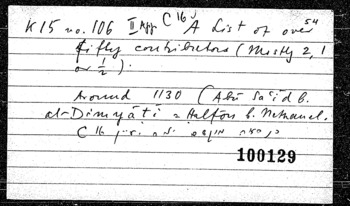 K15 no. 106 II App C 16 J A list of over 54
fifty contributors (Mostly 2, 1
or ½).
Around 1130 (Abū Saʿīd b.
al-Dimyāṭī = Halfon b. Nethanel.
C 16
100129